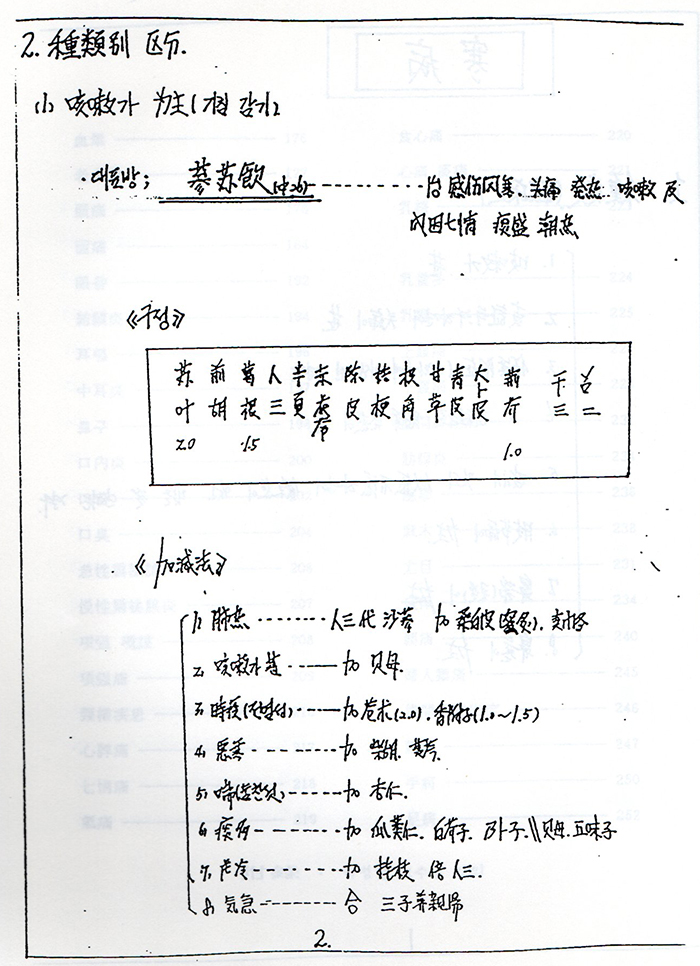 2. 種類別 区分.
(1) 咳嗽가 为主(기침 감기)
·대표방; 蔘苏飮 ---------- 治 感伤风寒. 头痛 发热. 咳嗽 及
内因七情 痰盛 潮热
《구성》
苏 前 葛 人 半 赤 陈 桔 枳 甘 青 大 薪 干 召
叶 胡 根 三 夏 茯 皮 梗 角 草 皮 卜 芥 三 二
苓 皮
2.0 1.5 1.0
《加减法》
1, 肺热 -------- 人三代 沙蔘 加 桑白皮
2, 咳嗽 ------ 加 贝母.
3, 時疫 ----- 加 苍术(2.0). 香附子(1.0~1.5)
4, 恶寒 -------- 加 柴胡. 黄芩.
5, 喘 ------- 加 杏仁.
6, 痰多 --------- 加 瓜蒌仁. 白芥子. 贝母. 五味子
7, 虚冷 -------- 加 桂枝 倍 人三.
8, 気急 -------- 合 三子养親湯
2.